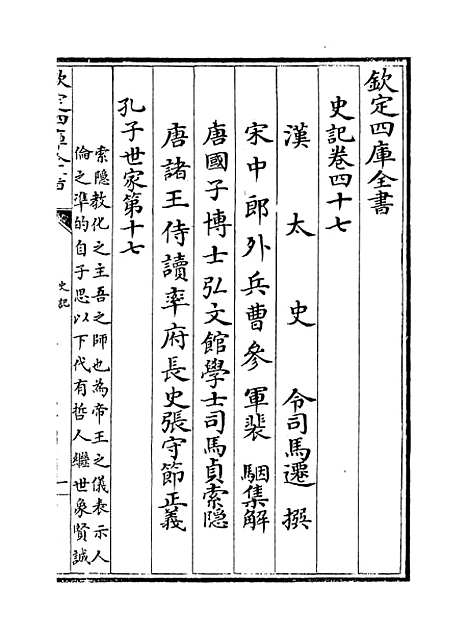 欽定四庫全書
史記卷四十七
漢太史令司馬遷撰
宋中郎外兵曹參軍裴駰集解
唐國子博士弘文館學士司馬貞索隐
唐諸王侍讀率府長史張守節正義
孔子世家第十七
索隐教化之主吾之師也為帝王之儀表示人
倫之準的自子思以下代有哲人繼世象賢誠
史記